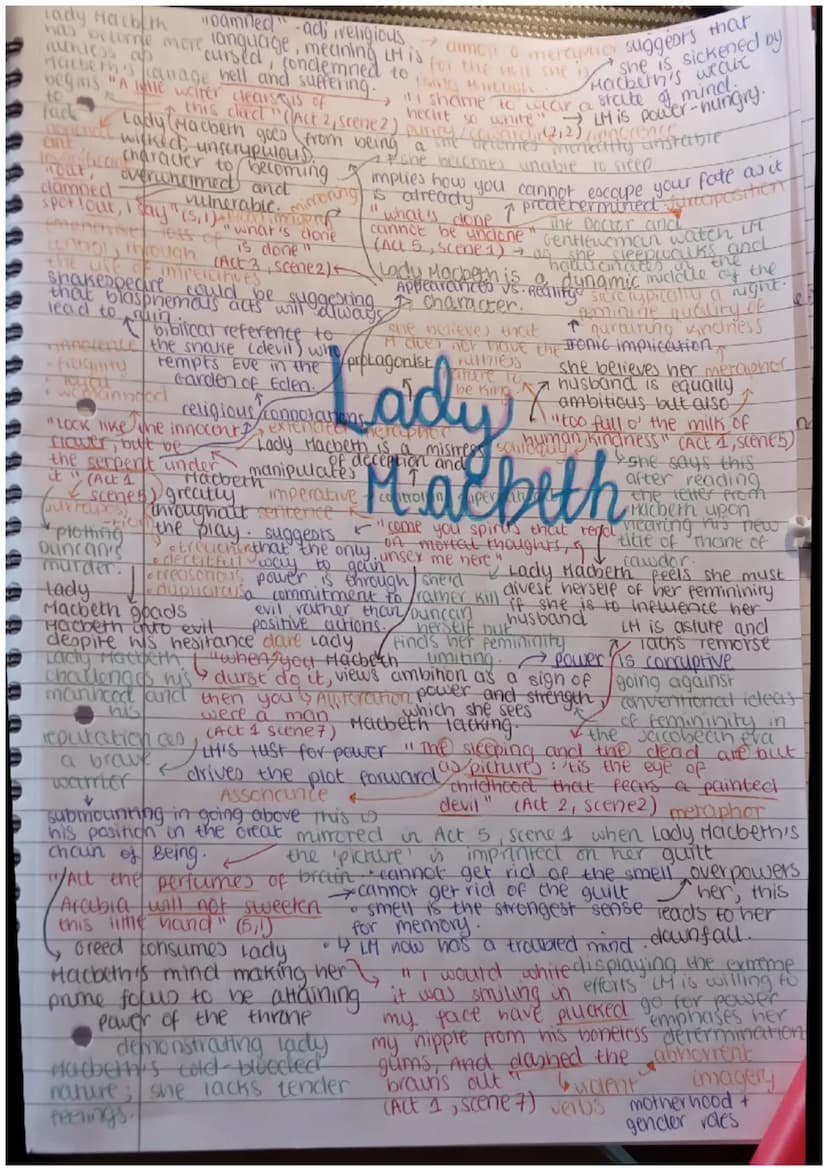 Lady Macbeth
has become more
ruthless as
Macbeth's lineage
begins
to
fade
"Damned" - adj religious
language, meaning LM is
cursed, condemned to
hell and suffering.
→ almost a metaphor
for the hell she is
living through.
suggests that
she is sickened by
Macbeth's weak
state of mind.
→ LM is power-hungry.
"A little water clears us of
this deed" (Act 2, scene 2)
"I shame to wear a
heart so white"
(2,2)
innocence
Lady Macbeth goes from being a
wicked, unscrupulous
character to becoming
overwhelmed and
vulnerable.
she becomes mentally unstable
+ she becomes unable to sleep
implies how you cannot escape your fate as it
is already predetermined
juxtaposition
"out,
damned
spot! out, I say" (5,1)
mirroring
emphasises loss of
control, through
the use of imperatives
"what's done
is done"
(Act 3, scene 2)
"what's done
cannot be undone"
(Act 5, scene 1)
The Doctor and
Gentlewoman watch LM
→ as she sleepwalks and
hallucinates in the
middle of the
night.
Lady Macbeth is a dynamic
character.
Appearances vs. Reality
Shakespeare could be suggesting
that blasphemous acts will always
lead to ruin.
biblical reference to
the snake (devil) who
tempts Eve in the
Garden of Eden.
religious connotations
protagonist
she believes that
M does not have the
ruthless
nature to
be King.
stereotypically a
feminine quality of
nurturing kindness
ironic implication
she believes her
husband is equally
ambitious but also
metaphor
"too full o' the milk of
human kindness" (Act 1, scene 5)
soliloquy
she says this
after reading
the letter from
Macbeth upon
hearing his new
title of 'Thane of
Cawdor.
· innocence
· fragility
· womanhood
"Look like the innocent
flower, but be
the serpent under
it" (Act 1
scene 5)
juxtaposition
extended metaphor
Lady Macbeth is a mistress
of deception and
manipulates
Macbeth
greatly
throughout
the play.
Lady
Macbeth
imperative
sentence
→ plotting
Duncan's
murder.
· treacherous
· deceitful
· treasonous
· duplicitous
suggests
that the only
way to gain
power is through
a commitment to
evil rather than
positive actions.
"come you spirits that tend
on mortal thoughts,
unsex me here"
she'd
rather kill
Duncan
herself but
finds her femininity
limiting.
Lady Macbeth feels she must
divest herself of her femininity
if she is to influence her
husband
LM is astute and
lacks remorse
Lady
Macbeth goads
Macbeth into evil
despite his hesitance
dare
Lady Macbeth
challenges his
manhood and
his
reputation as
a brave
warrior
"when you
durst do it,
then you
were a man
(Act 1 scene 7)
Alliteration
Lady
Macbeth
views ambition as a sign of
power and strength,
which she sees
Macbeth lacking.
→ power is corruptive
going against
conventional ideas
of femininity in
the Jacobean era
LM's lust for power
drives the plot forward
"The sleeping and the dead are but
as pictures: 'tis the eye of
childhood that fears a painted
devil" (Act 2, scene 2)
metaphor
Assonance
submounting in going above
his position in the Great
Chain of Being.
This is
mirrored in Act 5, scene 1 when Lady Macbeth's
the 'picture' is imprinted on her
brain
guilt
overpowers
her, this
leads to her
downfall.
"All the perfumes of
Arabia will not sweeten
this little hand" (5,1)
· cannot get rid of the smell
→ cannot get rid of the guilt
· smell is the strongest sense
for memory.
· ↳ LM now has a troubled mind.
Greed consumes Lady
Macbeth's mind making her
prime focus to be attaining
power of the throne
demonstrating Lady
Macbeth's cold-blooded
nature; she lacks tender
feelings.
"I would while
it was smiling in
my face have plucked
my nipple from his boneless
gums, and dashed the
brains out"
(Act 1, scene 7)
displaying the extreme
efforts LM is willing to
go for power
emphases her
determination
abhorrent
imagery
↳ violent
verbs
motherhood +
gender roles